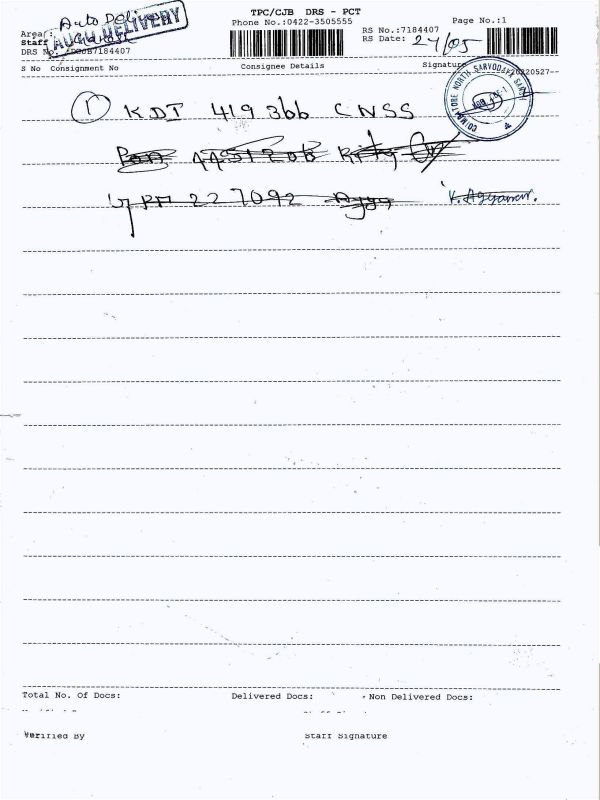 TPC/CJB DRS - PCT
Phone No.:0422-3505555
Page No.:1
Auto Delivery
AUTO DELIVERY
Area:
RS No.:7184407
Staff
RS Date: 27/05
DRS No.:
S No Consignment No Consignee Details Signature
20220527
COIMBATORE NORTH SARVODAYA SANGH
1 KDT 419366 CNSS
227092
V. Ayyanar.
Total No. Of Docs: Delivered Docs: Non Delivered Docs:
Verified By Staff Signature